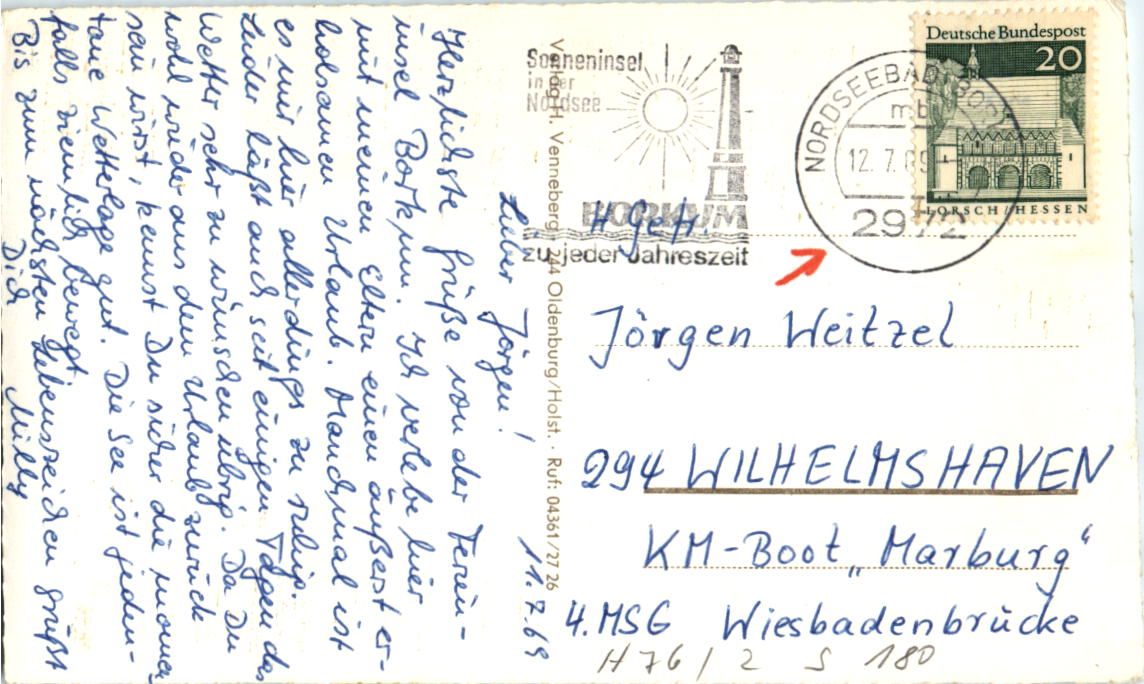 Lieber Jörgen! 11.7.69
Herzlichste Grüße von der Ferien-
insel Borkum. Ich verlebe hier
mit meinen Eltern einen äußerst er-
holsamen Urlaub. Manchmal ist
es mir hier allerdings zu ruhig.
Leider läßt auch seit einigen Tagen das
Wetter sehr zu wünschen übrig. Da Du
wohl wieder aus dem Urlaub zurück
sein wirst, kennst Du sicher die momen-
tane Wetterlage gut. Die See ist jeden-
falls ziemlich bewegt.
Bis zum nächsten Lebenszeichen grüßt
Dich Milly
Verlag H. Venneberg, 244 Oldenburg/Holst. · Ruf: 04361/27 26
Sonneninsel
in der
Nordsee
BORKUM
zu jeder Jahreszeit
NORDSEEBAD BORKUM
mb
12.7.69
2972
Deutsche Bundespost
20
LORSCH/HESSEN
H Gefr.
Jörgen Weitzel
294 WILHELMSHAVEN
KM-Boot „Marburg“
4. MSG Wiesbadenbrücke
H 76 / 2 S 180